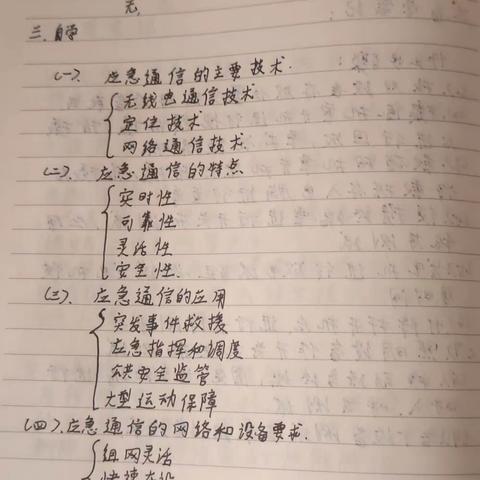 无.
三、自学
(一)、应急通信的主要技术.
无线电通信技术
定位技术
网络通信技术.
(二)、应急通信的特点
实时性
可靠性
灵活性
安全性.
(三)、应急通信的应用
突发事件救援
应急指挥和调度
公共安全监管
大型运动保障
(四)、应急通信的网络和设备要求.
组网灵活
快速布设